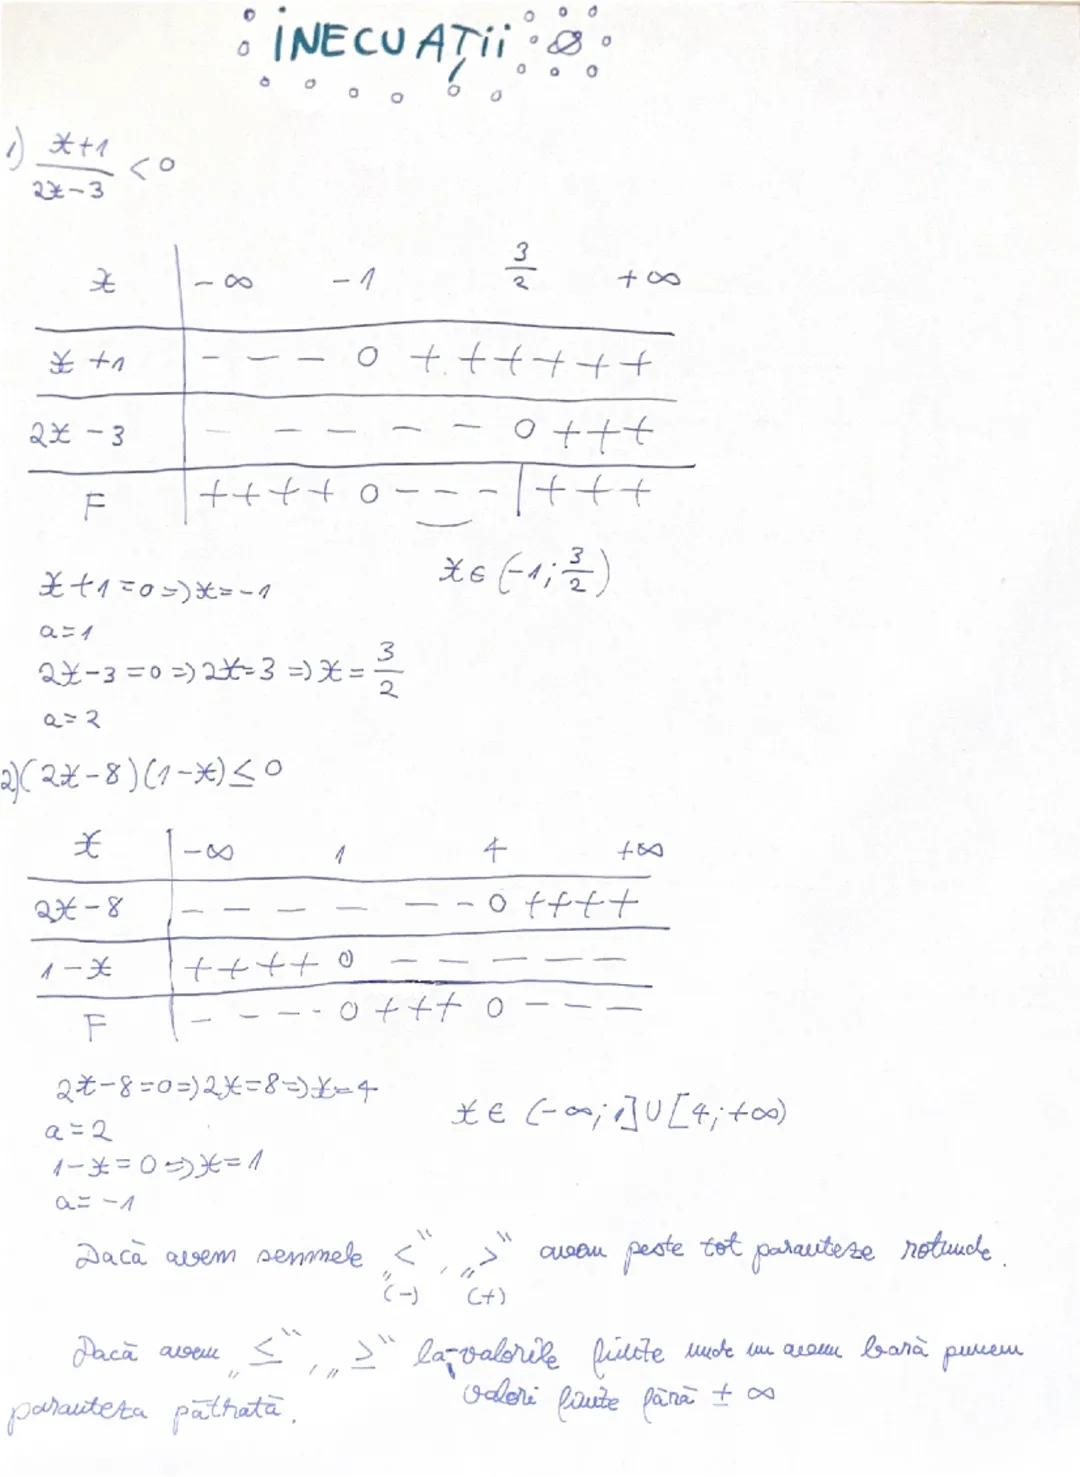 INECUAȚII
1) x+1 / 2x-3 < 0
x | -∞ -1 3/2 +∞
x+1 | - - - 0 + + + + + + +
2x-3 | - - - - - - 0 + + +
F | + + + + 0 - - - - | + + +
x+1=0 => x=-1
x ∈ (-1; 3/2)
a=1
2x-3=0 => 2x=3 => x = 3/2
a=2
2) (2x-8)(1-x) ≤ 0
x | -∞ 1 4 +∞
2x-8 | - - - - - - 0 + + + +
1-x | + + + + 0 - - - - - -
F | - - - - - 0 + + + 0 - - -
2x-8=0 => 2x=8 => x=4
x ∈ (-∞; 1] ∪ [4; +∞)
a=2
1-x=0 => x=1
a=-1
Dacă avem semnele „<“, „>“ avem peste tot paranteze rotunde.
(-) (+)
Dacă avem „≤“, „≥“ la valorile finite unde nu avem bară punem
valori finite fără ± ∞
paranteza pătrată.